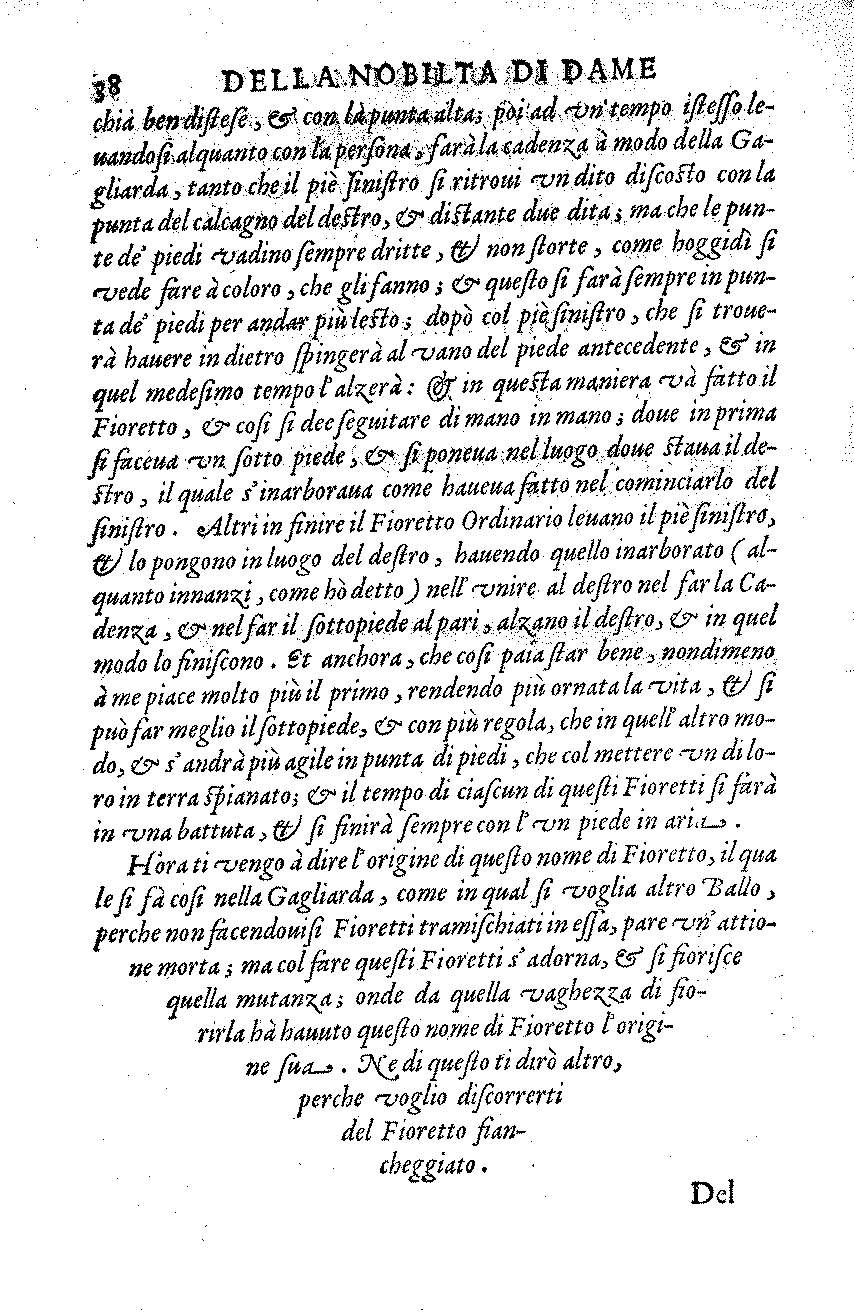 38 DELLA NOBILTA DI DAME
chia ben distese, & con la punta alta; poi ad vn' tempo istesso le-
uandosi alquanto con la persona, farà la cadenza à modo della Ga-
gliarda, tanto che il piè sinistro si ritroui vn dito discosto con la
punta del calcagno del destro, & distante due dita; ma che le pun-
te de' piedi vadino sempre dritte, & non storte, come hoggidì si
vede fare à coloro, che gli fanno; & questo si farà sempre in pun-
ta de' piedi per andar più lesto; dopò col piè sinistro, che si troue-
rà hauere in dietro spingerà al vano del piede antecedente, & in
quel medesimo tempo l'alzerà: & in questa maniera và fatto il
Fioretto, & così si dee seguitare di mano in mano; doue in prima
si faceua vn sotto piede, & si poneua nel luogo doue staua il de-
stro, il quale s'inarboraua come haueua fatto nel cominciarlo del
sinistro. Altri in finire il Fioretto Ordinario leuano il piè sinistro,
& lo pongono in luogo del destro, hauendo quello inarborato (al-
quanto innanzi, come hò detto) nell' vnire al destro nel far la Ca-
denza, & nel far il sottopiede al pari, alzano il destro, & in quel
modo lo finiscono. Et anchora, che così paia star bene, nondimeno
à me piace molto più il primo, rendendo più ornata la vita, & si
può far meglio il sottopiede, & con più regola, che in quell' altro mo-
do, & s'andrà più agile in punta di piedi, che col mettere vn di lo-
ro in terra spianato; & il tempo di ciascun di questi Fioretti si farà
in vna battuta, & si finirà sempre con l'vn piede in aria.
Hora ti vengo à dire l'origine di questo nome di Fioretto, il qua
le si fà così nella Gagliarda, come in qual si voglia altro Ballo,
perche non facendouisi Fioretti tramischiati in essa, pare vn' attio-
ne morta; ma col fare questi Fioretti s'adorna, & si fiorisce
quella mutanza; onde da quella vaghezza di fio-
rirla hà hauuto questo nome di Fioretto l'origi-
ne sua. Ne di questo ti dirò altro,
perche voglio discorrerti
del Fioretto fian-
cheggiato.
Del